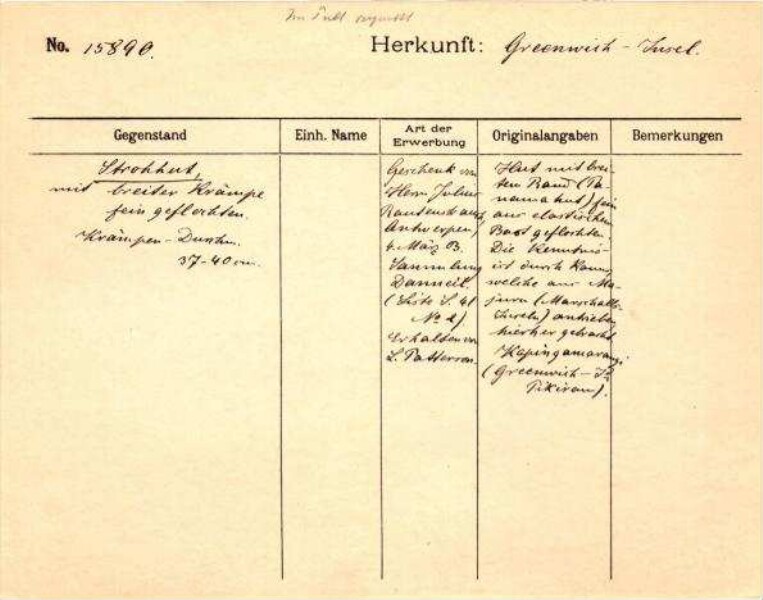 No. 15890.
Herkunft: Greenwich-Insel.
Gegenstand
Einh. Name
Art der
Erwerbung
Originalangaben
Bemerkungen
Strohhut,
mit breiter Krämpe
fein geflochten.
Krämpen-Durchm.
37-40 cm.
Geschenk von
Herrn Julius
Rautenstrauch,
Antwerpen,
4. März
Sammlung
Danneil.
(Liste S. 41
No 2).
Erhalten von
L. Patterson.
Hut mit brei-
tem Rand (Pa-
namahut) fein
aus elastischem
Bast geflochten.
Die Kenntnis
ist durch
welche aus Ma-
juru (Marschall-
Inseln) antrieben
hierher gebracht.
Kapingamarangi
(Greenwich-
Pikiram).